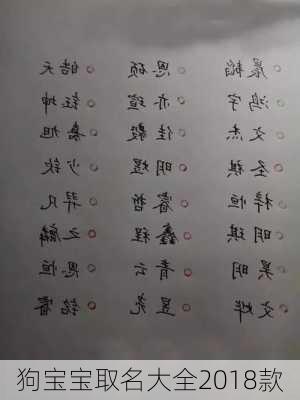 晨韬 恩硕 皓天
鸿宇 亦瑄 钰坤
文杰 佳毅 嘉旭
圣祺 明煜 少钦
梓恒 睿哲 羿凡
明琪 鑫程 之麟
昊明 青云 恩恒
文烨 昱尧 铭睿
狗宝宝取名大全2018款